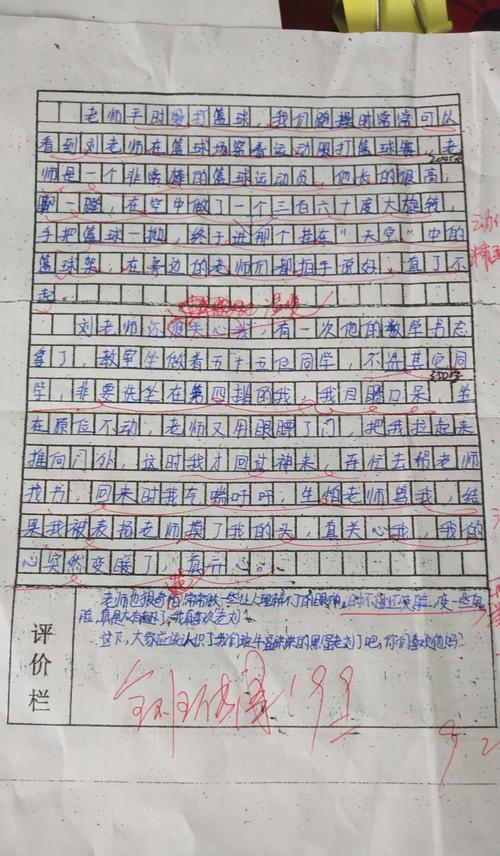 老师平时爱打篮球，我们跑操时常常可以
看到刘老师在篮球场穿着运动服打篮球赛。老
师是一个非常棒的篮球运动员，他长的很高，
脚一蹬，在空中做了一个三百六十度大旋转，
手把篮球一抛，终于进那个挂在“天空”中的
篮球架，在旁边的老师们都拍手说好，真了不
起。
刘老师还很关心我，有一次他的数学书忘
拿了，教室坐做着五十五位同学，不选其它同
学，非要选坐在第四排的我，我目瞪口呆，坐
在原位不动，老师又用眼瞟了门，把我拉起来
推向门外，这时我才回过神来，连忙去帮老师
找书，回来时我气喘吁吁，生怕老师骂我，结
果我被表扬老师摸了我的头，真关心我，我的
心突然变暖了，真开心。
暖
老师也很奇怪，常常做一些让人理解不了的眼神，时不时还变脸，
脸，真是太有趣了，我喜欢老刘？
这下，大家应该认识了我们班牛逼哄哄的黑蛋老刘了吧，你们喜欢他吗？
评价栏
全班伝阅！99
9.2